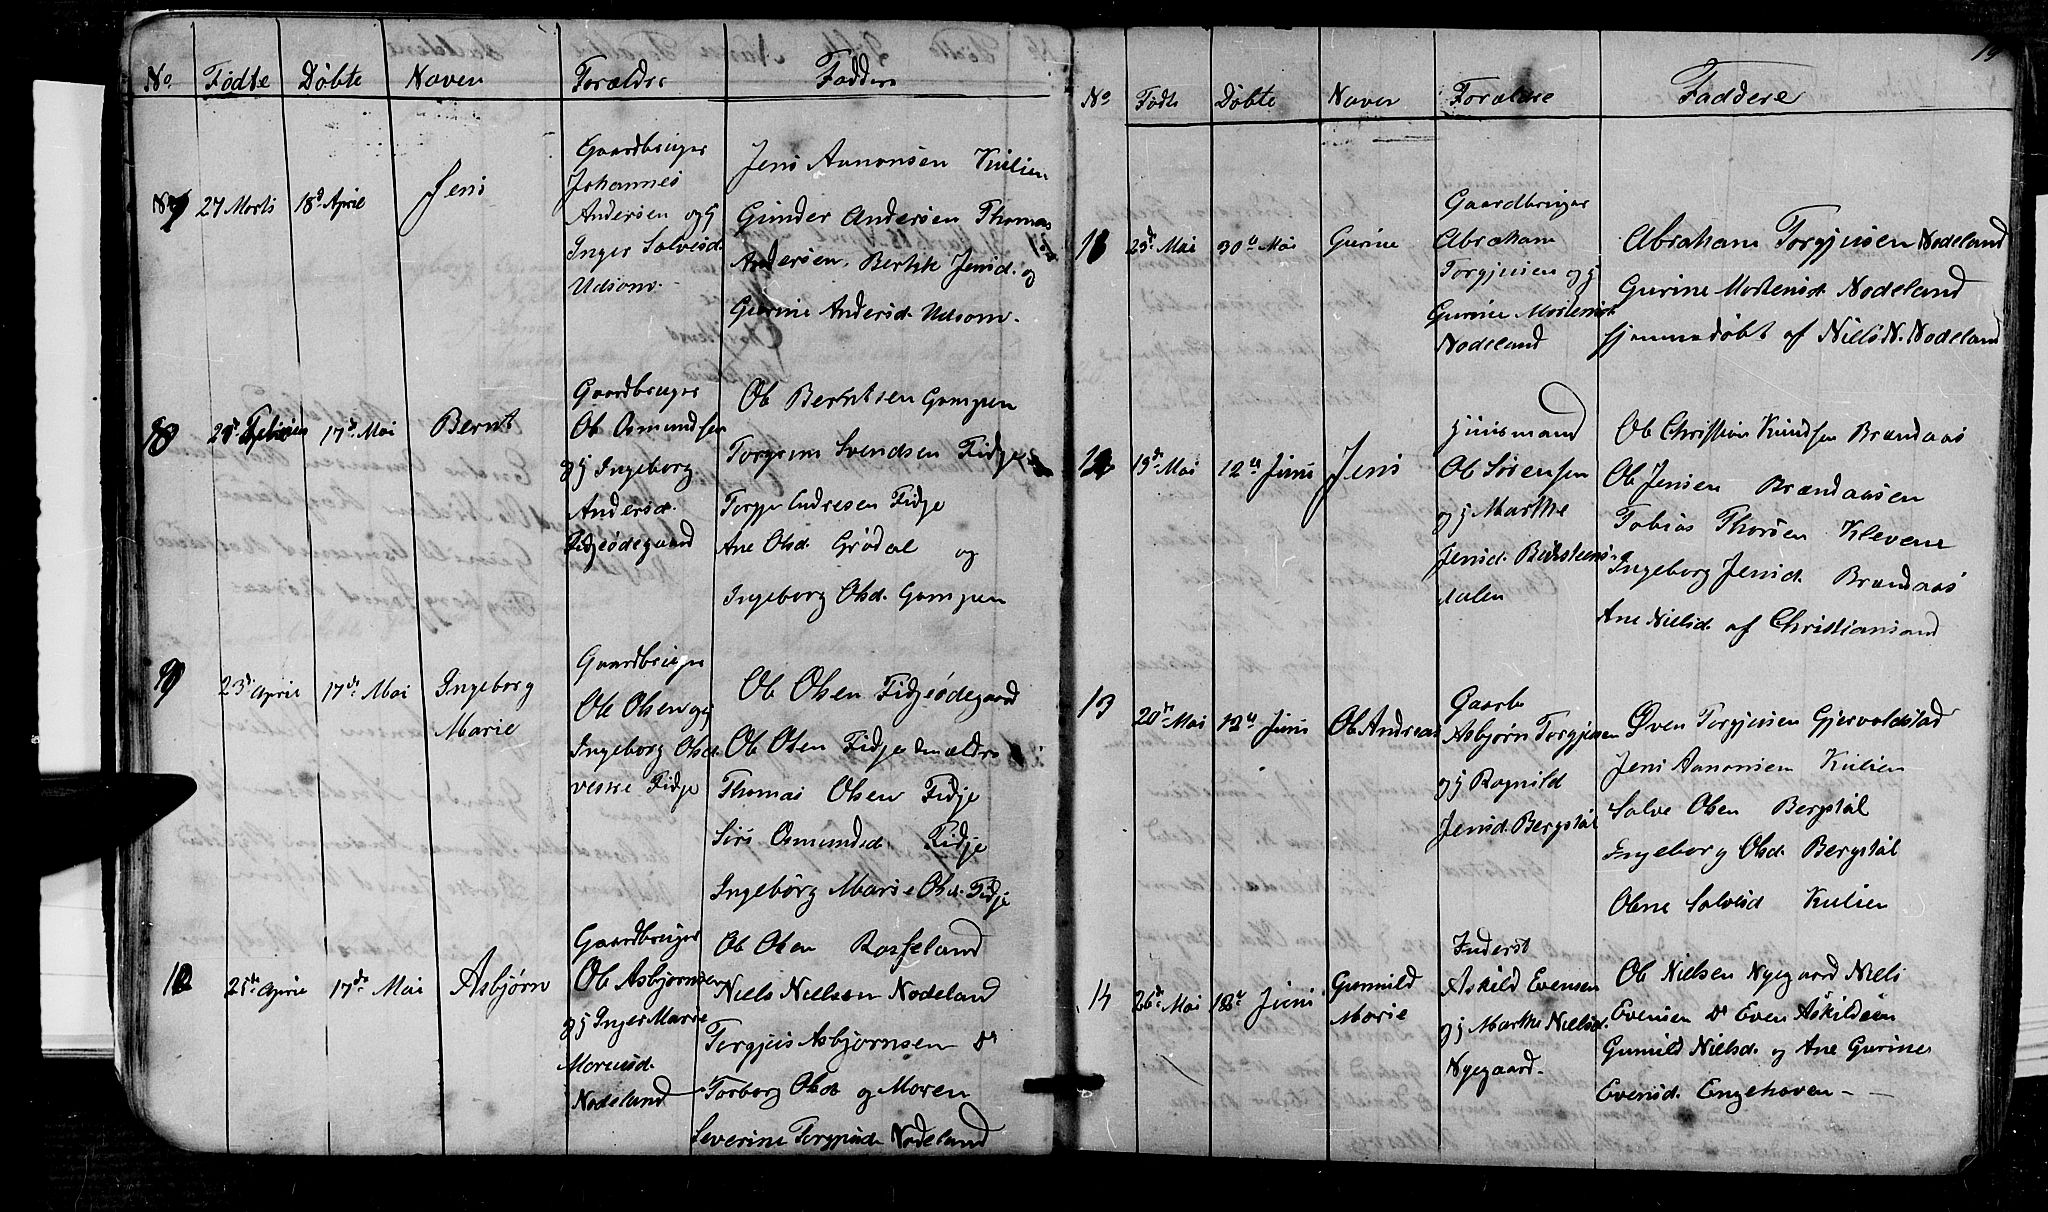 No. Fødte Døbte Naven Forældre Faddere
7 27 Marts 18d April Jens
Gaardbruger
Johannes
Andersen og h
Inger Salvesd.
Udsom.
Jens Aanonsen Kulien
Gunder Andersen Thomas
Andersen, Berthe Jensd. og
Gurine Andersd. Udsom.
8 17de Mai Bernt
Gaardbruger
Ole Osmundsen
og h Ingeborg
Andersd.
Fidjeødegaard
Ole Berntsen Gumpen
Torgrim Svendsen Fidje
Torgje Endresen Fidje
Ane Olsd. Grødal og
Ingeborg Olsd. Gumpen
9 23d April 17de Mai Ingeborg
Marie
Gaardbruger
Ole Olsen og h
Ingeborg Olsd.
veske Fidje
Ole Olsen Fidjeødegaard
Ole Olsen Fidje den ældre
Thomas Olsen Fidje
Siri Osmundsd. Fidje
Ingebørg Marie Olsd. Fidje
10 21de April 17de Mai Asbjørn
Gaardbruger
Ole Asbjørnsen
og h Inger Marie
Nodeland
Ole Olsen Rosseland
Niels Nielsen Nodeland
Torgjus Asbjørnsen Do
Torborg Olsd. og Maren
Severine Torgjusd. Nodeland
19
No Fødte Døbte Naven Forældre Faddere
11 23de Mai 30te Mai Gurine
Gaardbruger
Abraham
Torgjusen og h
Gurine Mortensd.
Nodeland
Abraham Torgjusen Nodeland
Gurine Mortensd. Nodeland
hjemmedøbt af Niels N. Nodeland
12 19de Mai 12te Juni Jens
Huusmand
Ole Sørensen
og h Marthe
Jensd.
dalen
Ole Christian Knudsen Brændaas
Ole Jensen Brændaasen
Tobias Thorsen Klevene
Ingeborg Jensd. Brændaas
Ane Nielsd. af Christiansand
13 20de Mai 12te Juni Ole Andreas
Gaarbr
Asbjørn Torgjusen
og h Ragnild
Jensd. Bergstøl
Even Torgjusen Gjervoldstad
Jens Aanonsen Kulien
Salve Olsen Bergstøl
Ingeborg Olsd. Bergstøl
Olene Salvesd Kulien
14 26de Mai 12te Juni Gunuld
Marie
Inderst
Askild Evensen
og h Marthe Nielsd.
Nyegaard.
Ole Nielsen Nyegaard Niels
Evensen Do Even Askildsen
Gunuld Nielsd. og Ane Gurine
Evensd. Engehaven